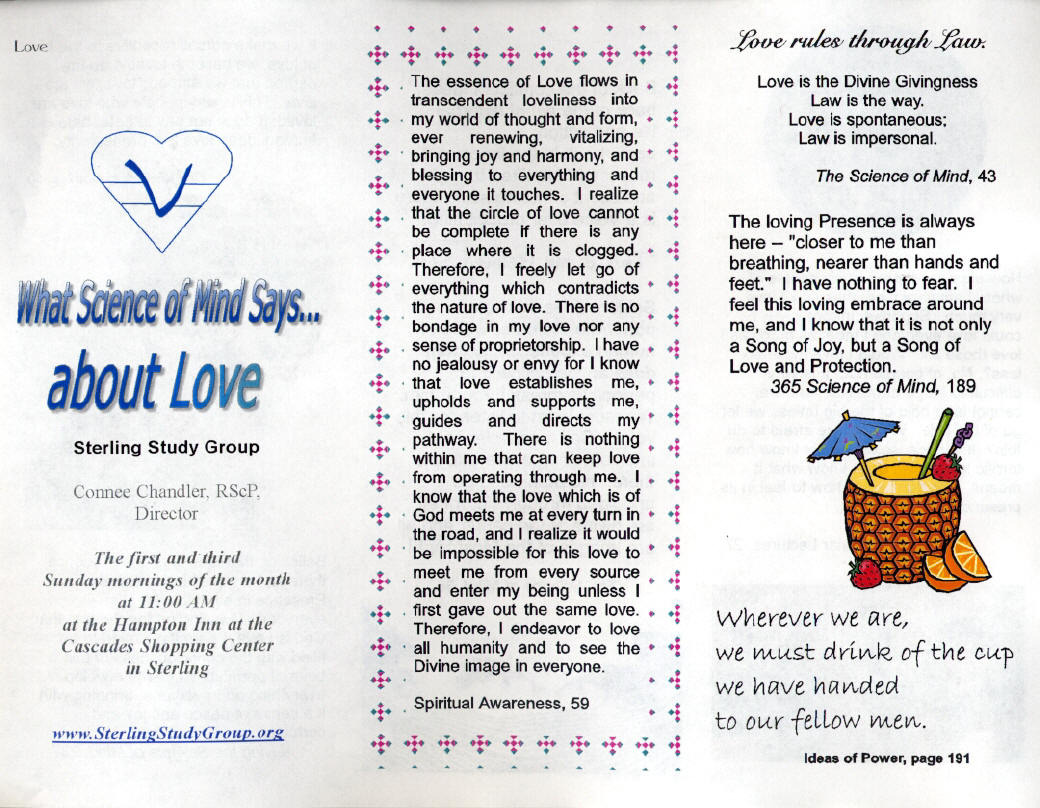 Love
What Science of Mind Says...
about Love
Sterling Study Group
Connee Chandler, RScP,
Director
The first and third
Sunday mornings of the month
at 11:00 AM
at the Hampton Inn at the
Cascades Shopping Center
in Sterling
www.SterlingStudyGroup.org
The essence of Love flows in
transcendent loveliness into
my world of thought and form,
ever renewing, vitalizing,
bringing joy and harmony, and
blessing to everything and
everyone it touches. I realize
that the circle of love cannot
be complete if there is any
place where it is clogged.
Therefore, I freely let go of
everything which contradicts
the nature of love. There is no
bondage in my love nor any
sense of proprietorship. I have
no jealousy or envy for I know
that love establishes me,
upholds and supports me,
guides and directs my
pathway. There is nothing
within me that can keep love
from operating through me. I
know that the love which is of
God meets me at every turn in
the road, and I realize it would
be impossible for this love to
meet me from every source
and enter my being unless I
first gave out the same love.
Therefore, I endeavor to love
all humanity and to see the
Divine image in everyone.
Spiritual Awareness, 59
Love rules through Law.
Love is the Divine Givingness
Law is the way.
Love is spontaneous;
Law is impersonal.
The Science of Mind, 43
The loving Presence is always
here – "closer to me than
breathing, nearer than hands and
feet." I have nothing to fear. I
feel this loving embrace around
me, and I know that it is not only
a Song of Joy, but a Song of
Love and Protection.
365 Science of Mind, 189
Wherever we are,
we must drink of the cup
we have handed
to our fellow men.
Ideas of Power, page 191